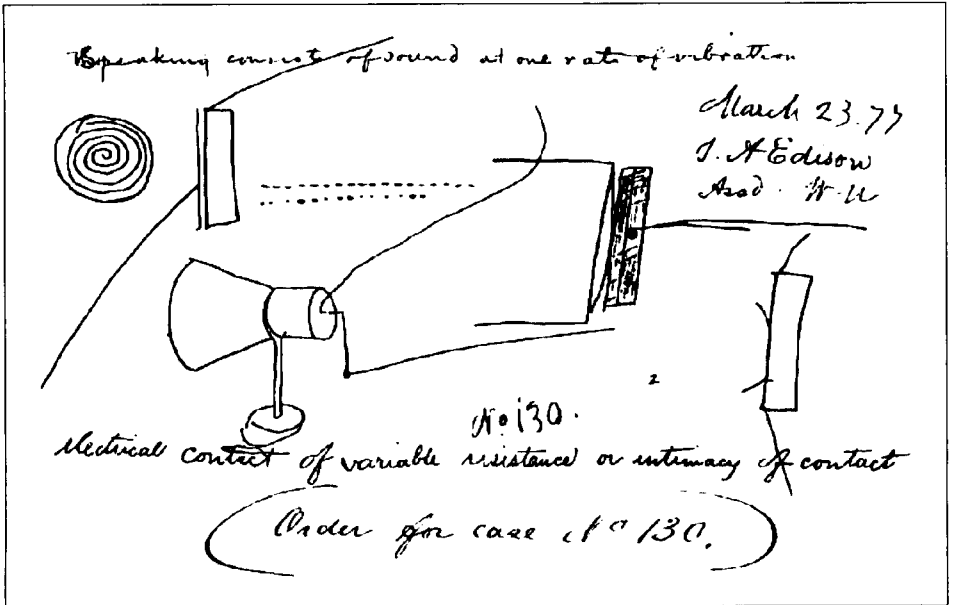 Speaking consists of sound at one rate of vibration
March 23.77
T. A Edison
W. U
2
No 130.
Electrical contact of variable resistance or intimacy of contact
Order for case No 130.